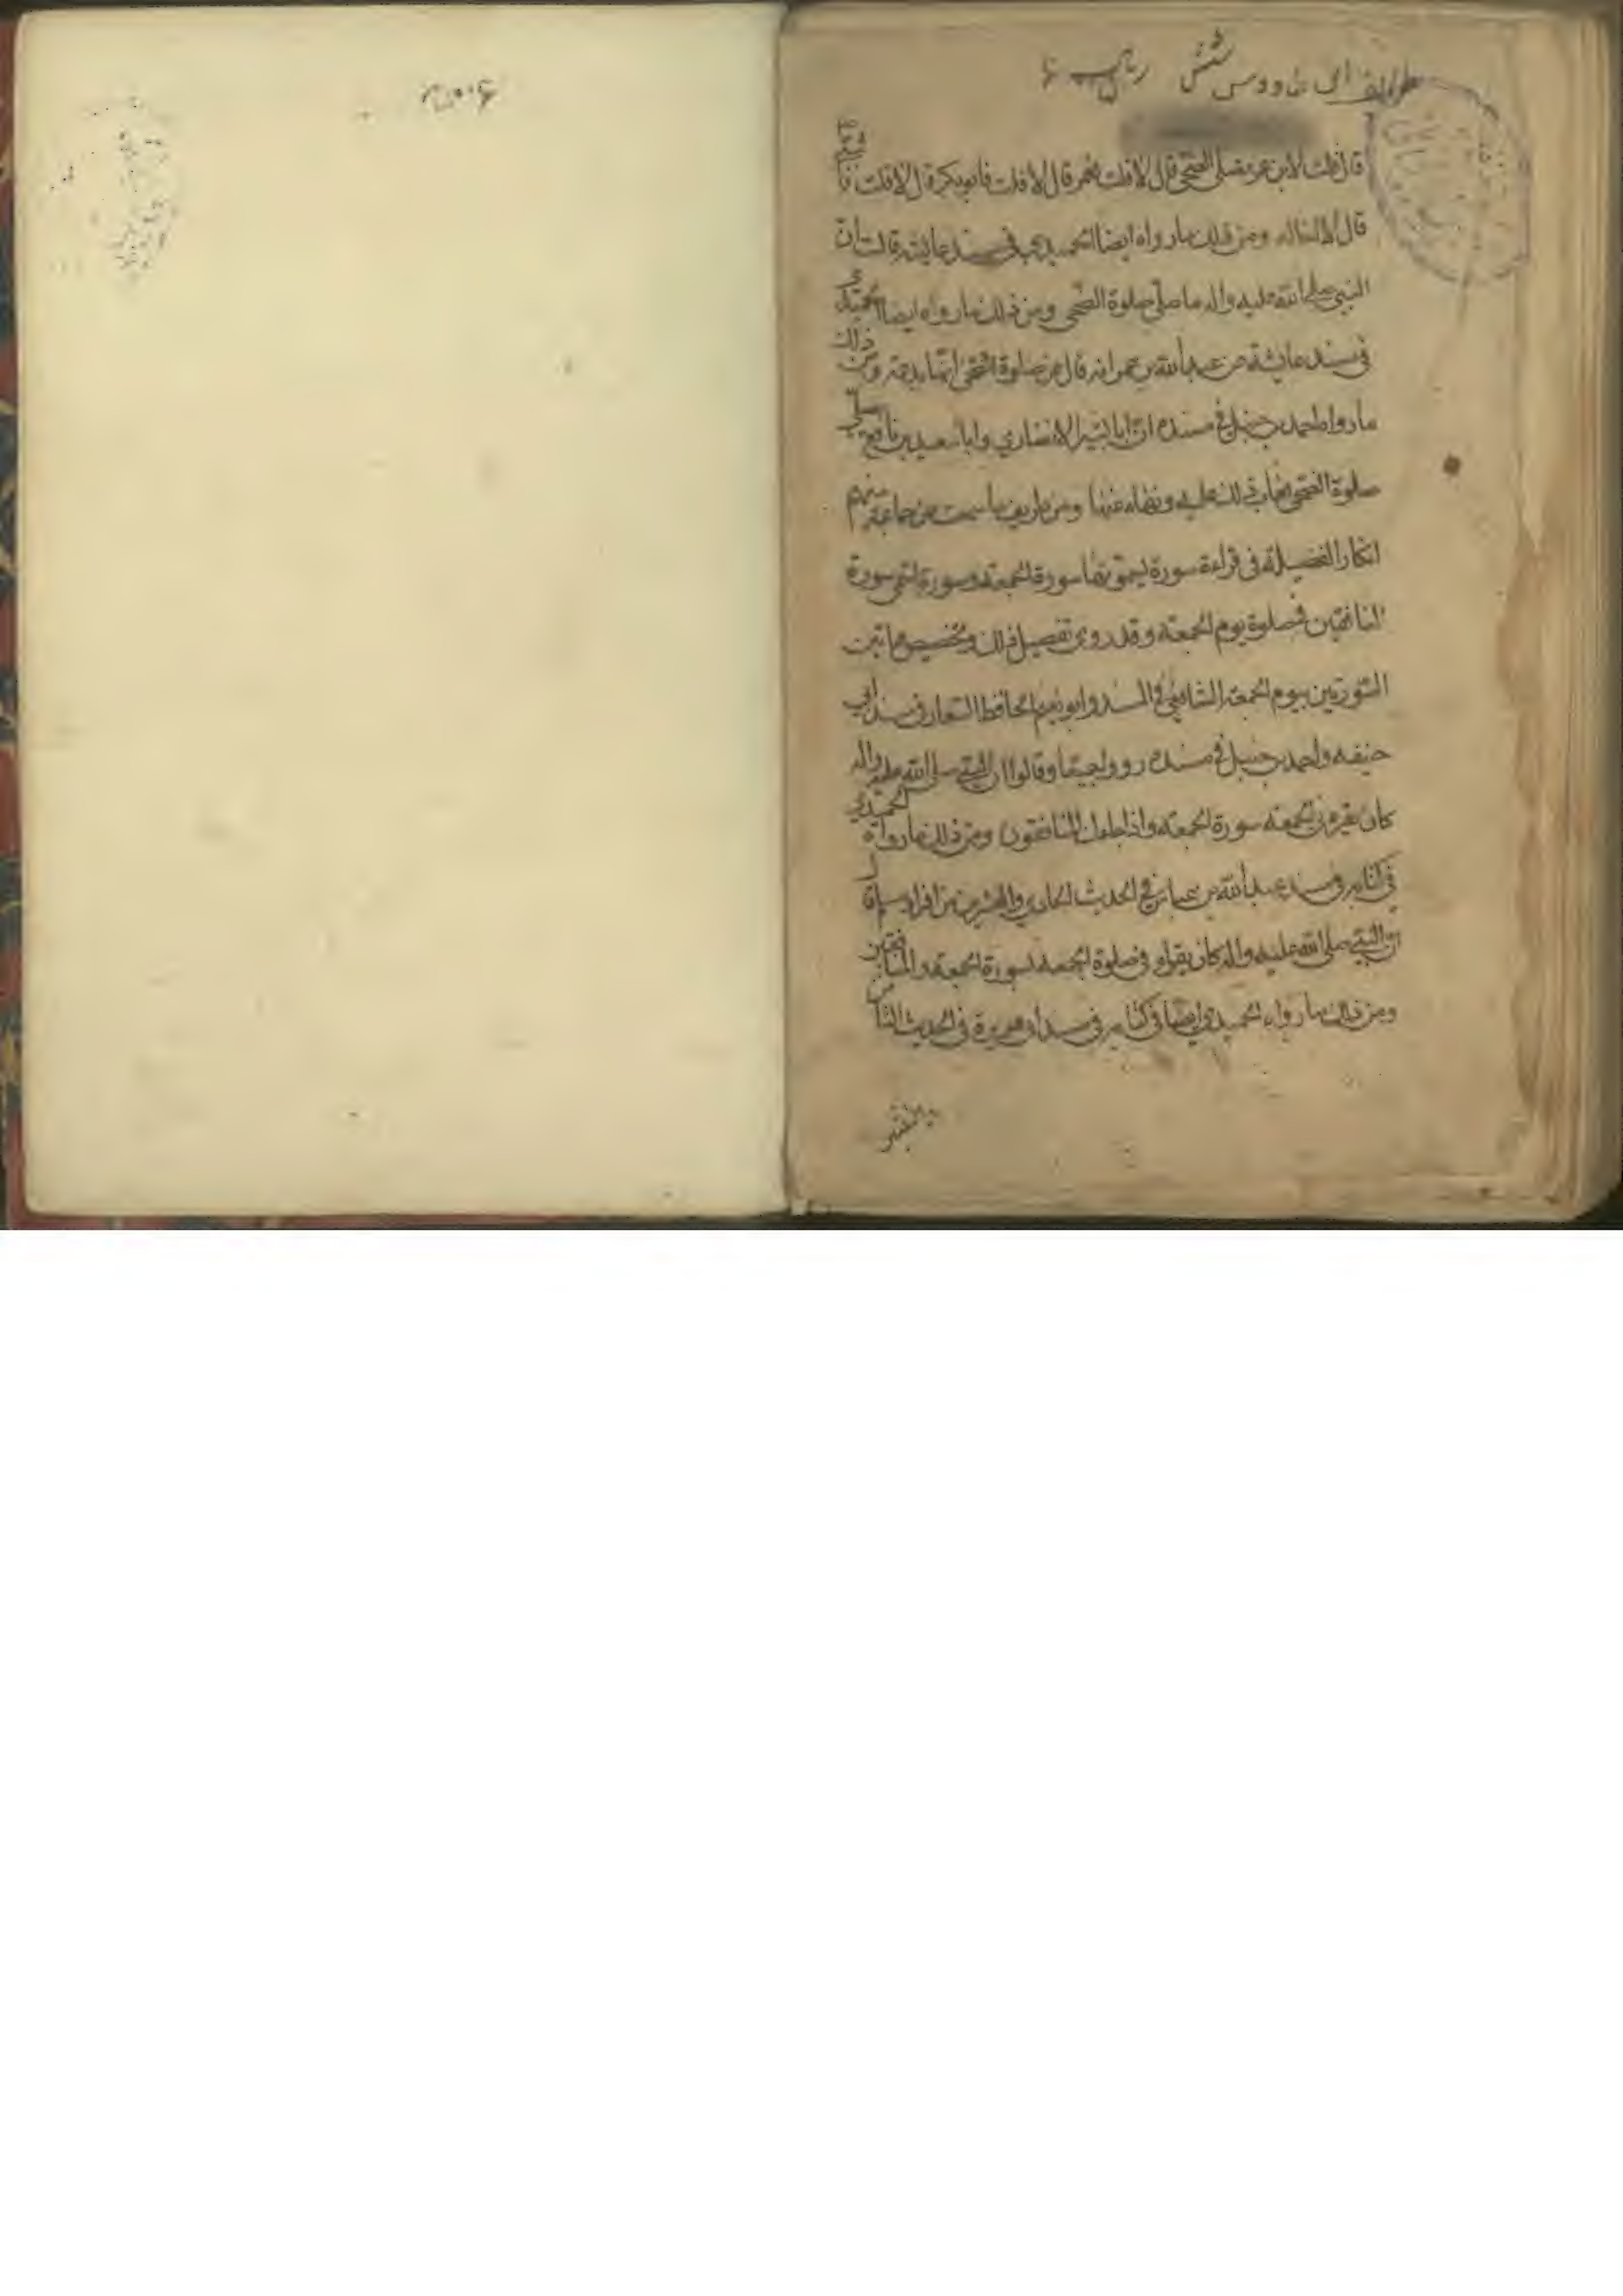 طرائف ابن طاووس شش
قال قلت لابن عمر تصلى الضحى قال لا قلت فعمر قال لا قلت فابوبكر قال لا قلت
قال لا اخاله ومن ذلك ما رواه ايضا الحميدى فى مسند عايشه قالت ان
النبي صلى الله عليه واله ما صلى صلوة الضحى ومن ذلك ما رواه ايضا الحميدي
فى مسند عائشة عن عبد الله بن عمر انه قال عن صلوة الضحى انها بدعة ومن ذلك
ما رواه احمد بن حنبل فى مسنده ان ابا بشير الانصاري وابا سعيد بن نافع
صلوة الضحى فعاب ذلك عليه ونهاه عنها ومن طريف ما سمعت عن جماعة منهم
انكار الفضيلة فى قراءة سورة يسمونها سورة الجمعة وسورة تسمى سورة
المنافقين فى صلوة يوم الجمعة وقد روى تفصيل ذلك وتخصيص هاتين
السورتين بيوم الجمعة الشافعي فى المسند وابو نعيم الحافظ فى مسند ابي
حنيفه واحمد بن حنبل فى مسنده رووا جميعا وقالوا ان النبي صلى الله عليه واله
كان يقرء فى الجمعه سورة الجمعه واذا جاءك المنافقون ومن ذلك ما رواه الحميدي
فى كتابه فى مسند عبد الله بن عباس فى الحديث الحادي والعشرين من افراد مسلم
ان النبي صلى الله عليه واله كان يقراء فى صلوة الجمعه سورة الجمعة والمنافقين
ومن ذلك ما رواه الحميدي ايضا فى كتابه فى مسند ابى هريرة فى الحديث الثامن